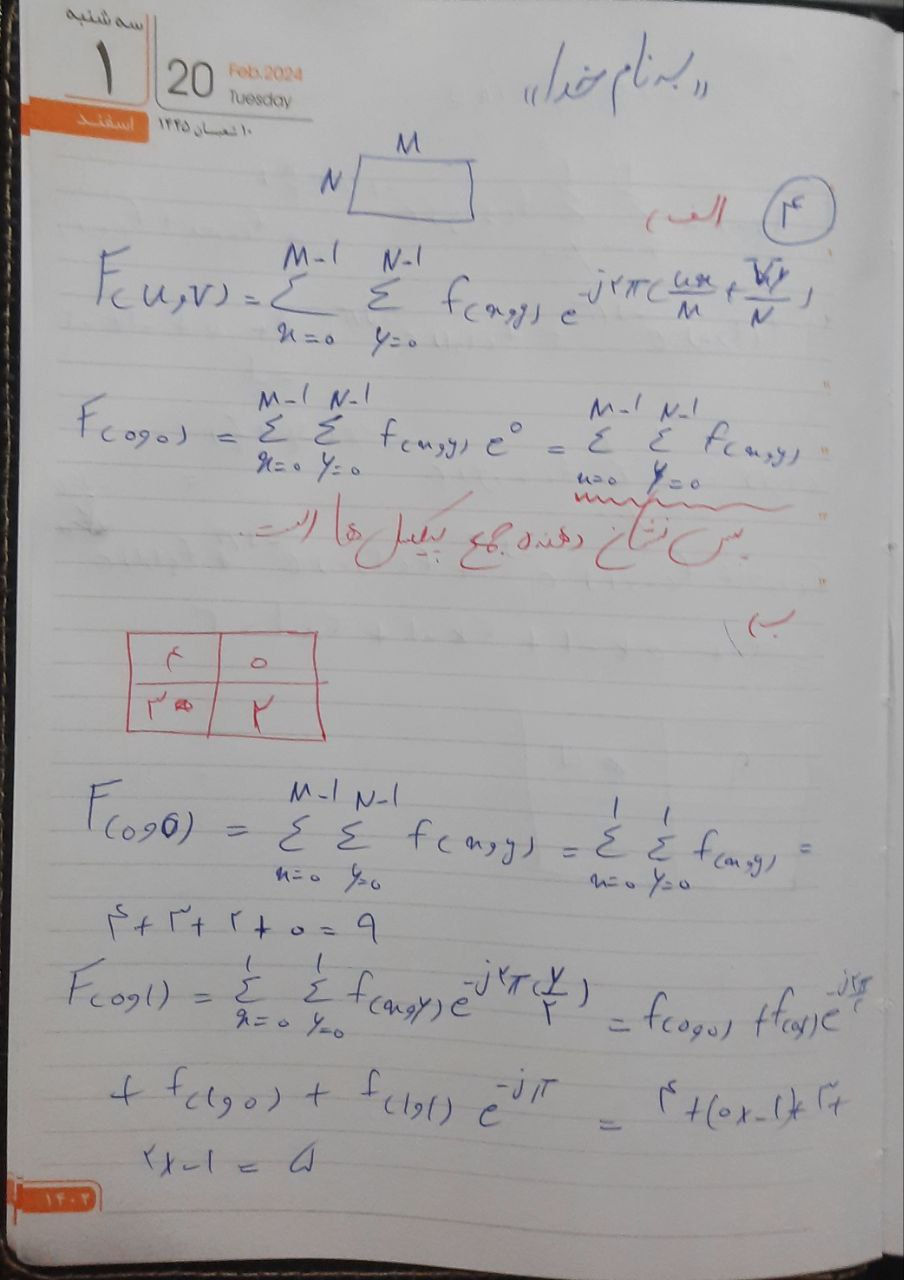 سه شنبه
۱
اسفند
20 Feb.2024
Tuesday
۱۰ شعبان ۱۴۴۵
«به نام خدا»
M
N
۴ الف)
F(u,v) = Σ_{x=0}^{M-1} Σ_{y=0}^{N-1} f(x,y) e^{-j۲π(ux/M + vy/N)}
F(0,0) = Σ_{x=0}^{M-1} Σ_{y=0}^{N-1} f(x,y) e^0 = Σ_{x=0}^{M-1} Σ_{y=0}^{N-1} f(x,y)
پس نشان دهنده جمع پیکسل ها است.
ب)
۴ ۰
۳ ۲
F(0,0) = Σ_{x=0}^{M-1} Σ_{y=0}^{N-1} f(x,y) = Σ_{x=0}^{1} Σ_{y=0}^{1} f(x,y) =
۴+۳+۲+۰ = ۹
F(0,1) = Σ_{x=0}^{1} Σ_{y=0}^{1} f(x,y) e^{-j۲π(y/۲)} = f(0,0) + f(0,1) e^{-j۲π/۲}
+ f(1,0) + f(1,1) e^{-jπ} = ۴+(۰×-۱)+۳+
۲×-۱ = ۵
۱۴۰۲